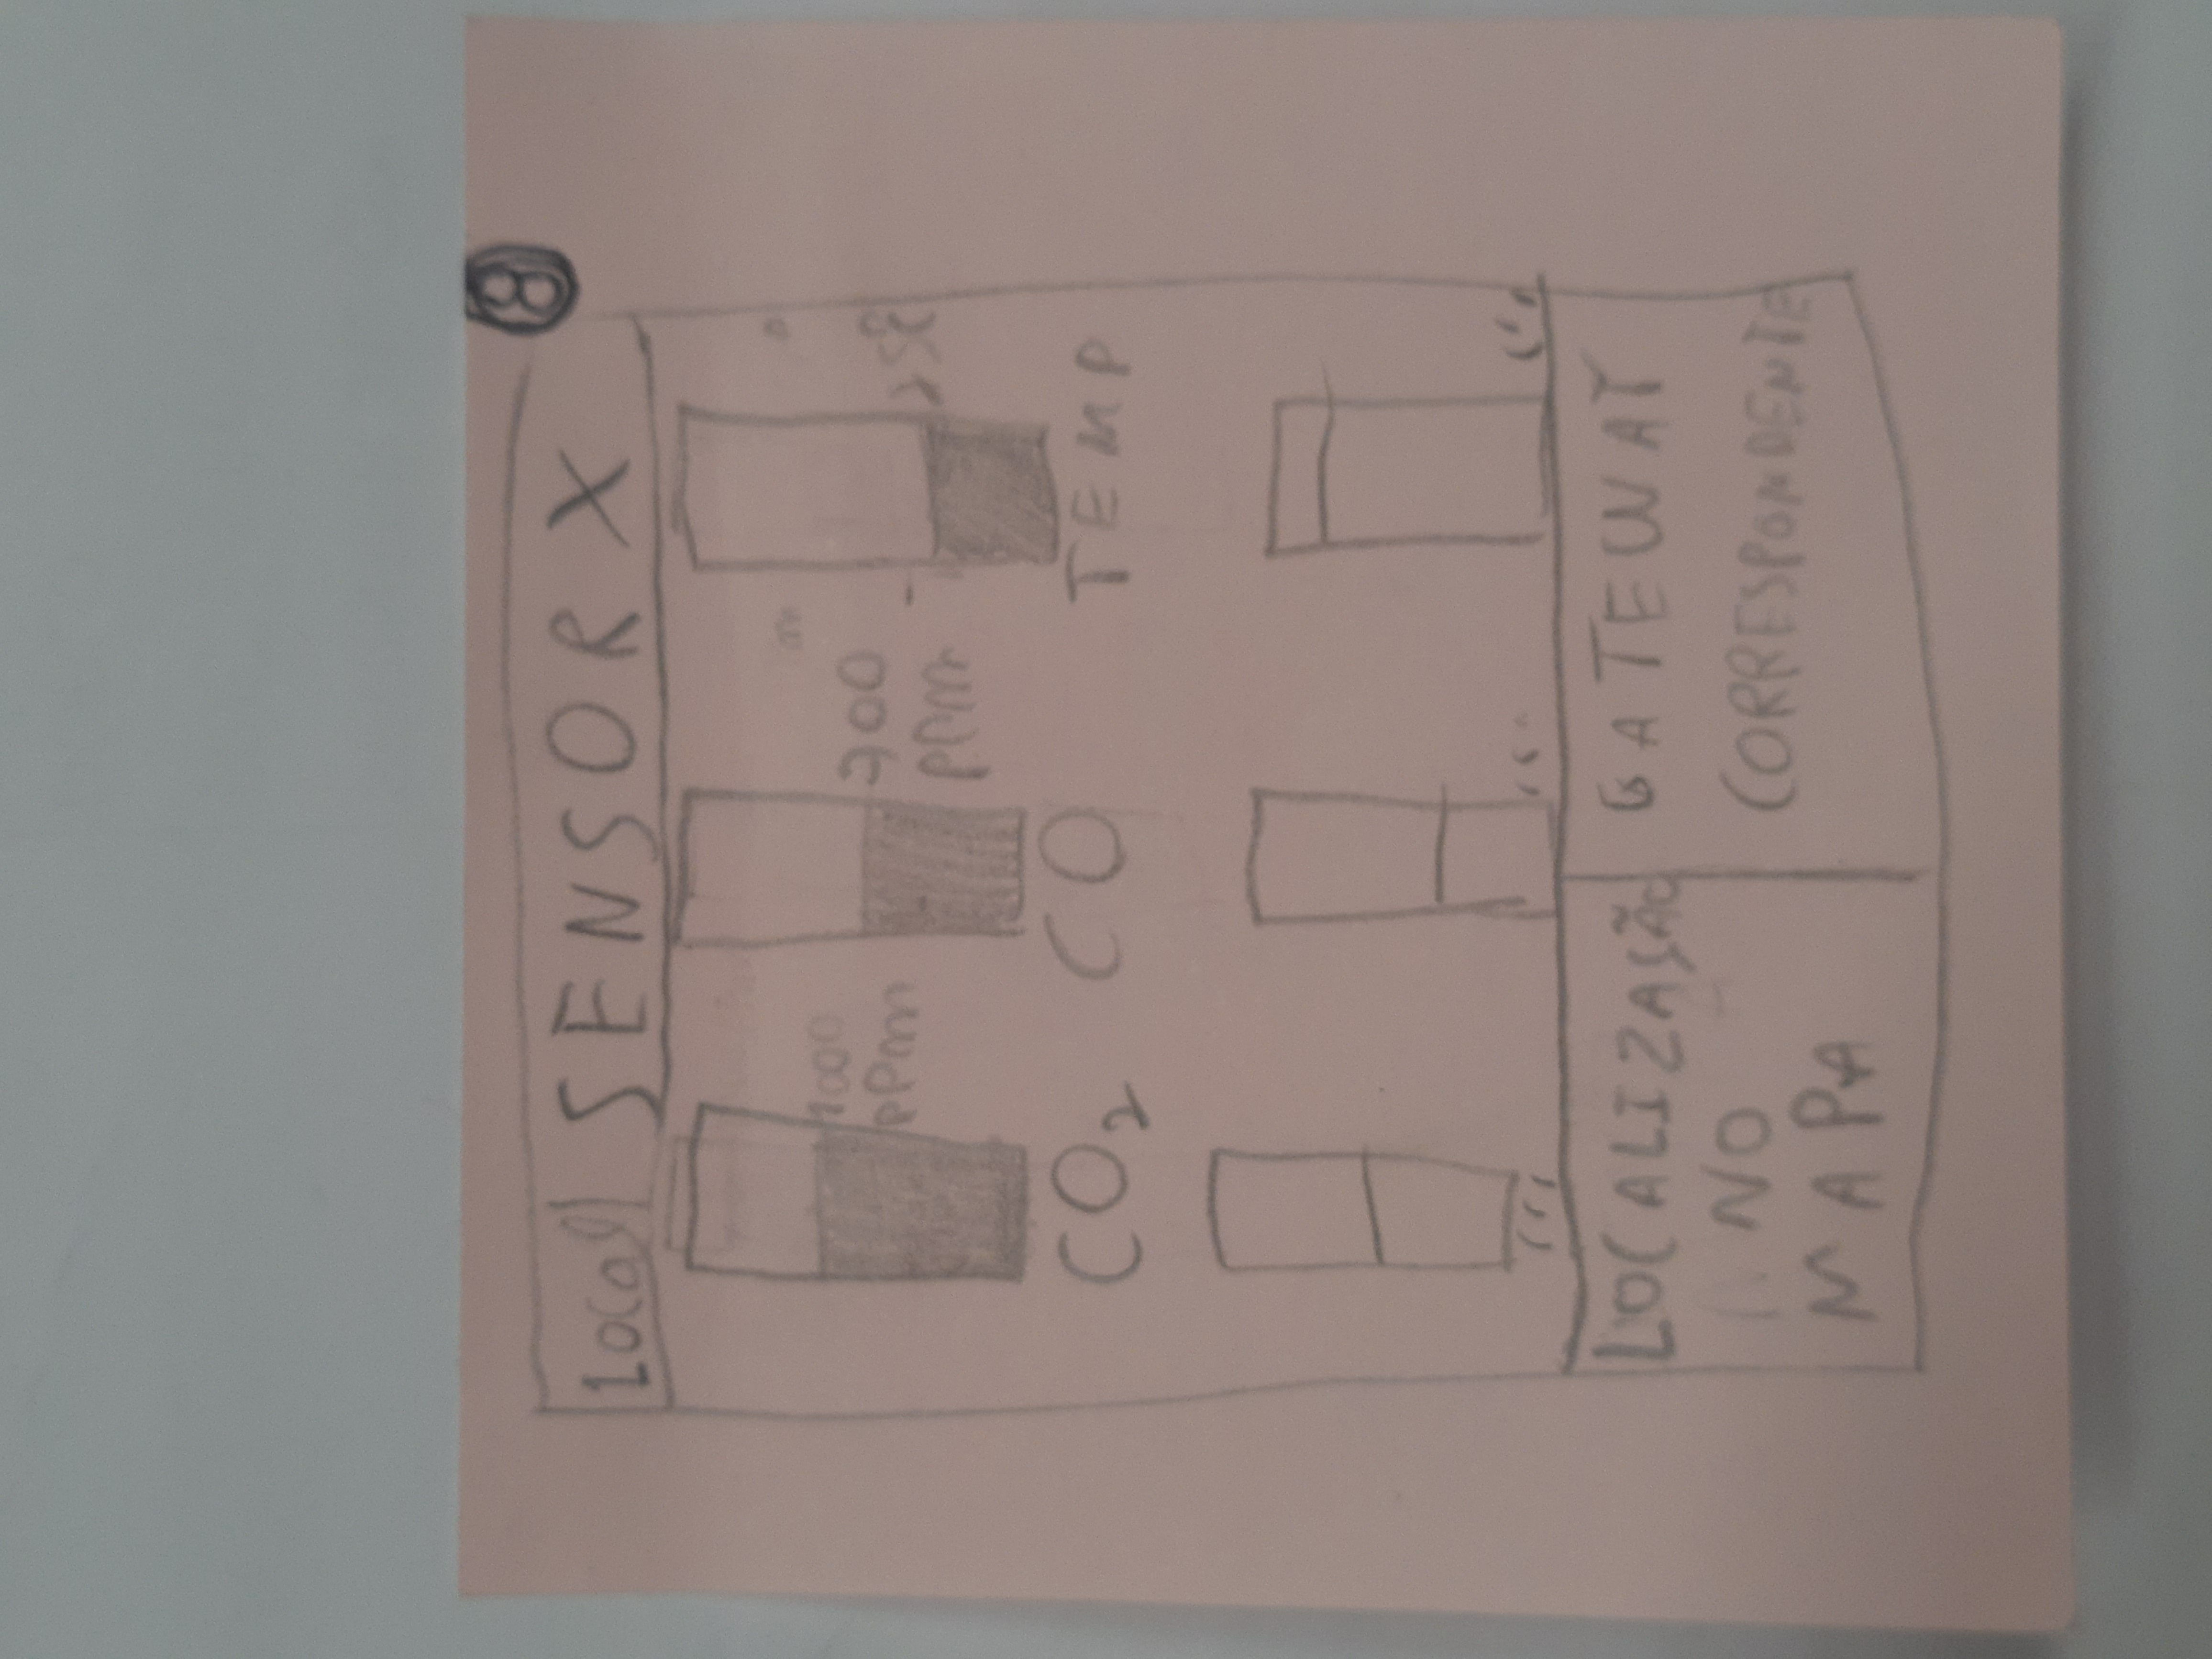 8
Local SENSOR X
1000
ppm
700
ppm
25°
CO₂ CO TEMP
LOCALIZAÇÃO
NO
MAPA
GATEWAY
CORRESPONDENTE